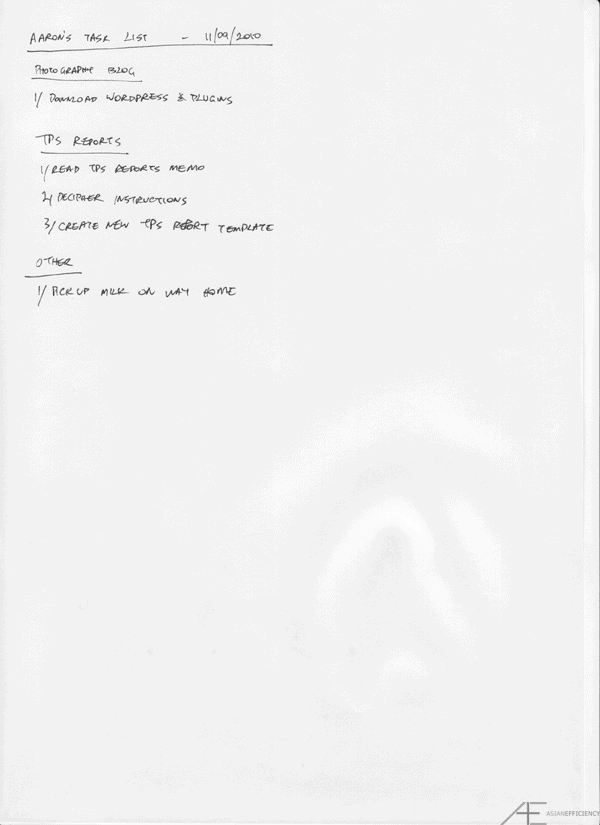 AARON'S TASK LIST - 11/09/2010
PHOTOGRAPHY BLOG
1/ DOWNLOAD WORDPRESS & PLUGINS
TPS REPORTS
1/ READ TPS REPORTS MEMO
2/ DECIPHER INSTRUCTIONS
3/ CREATE NEW TPS REPORT TEMPLATE
OTHER
1/ PICK UP MILK ON WAY HOME
AE ASIANEFFICIENCY